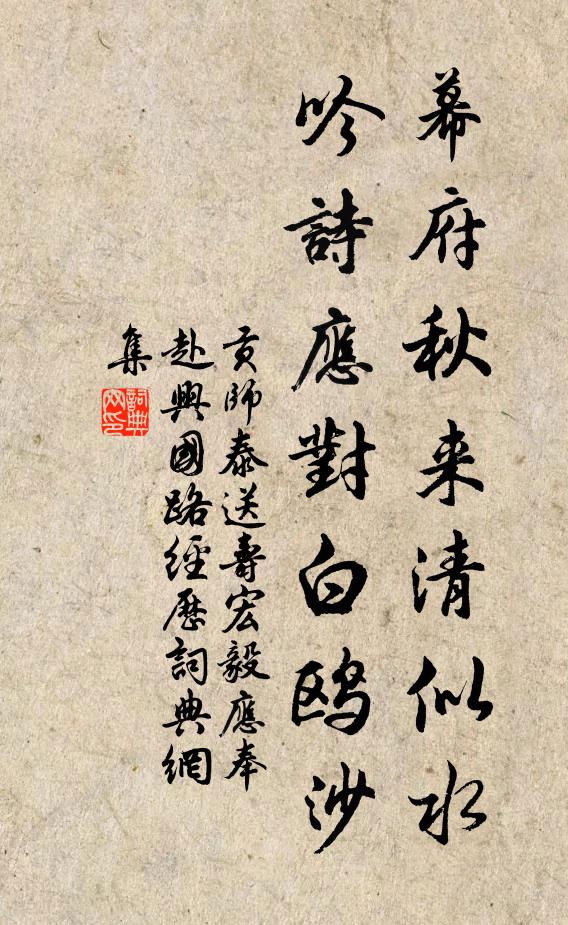 幕府秋来清似水
吟詩應對白鸥沙
贡師泰送壽宏毅應奉
赴興國路經歷詞典網
集
詞典
网印